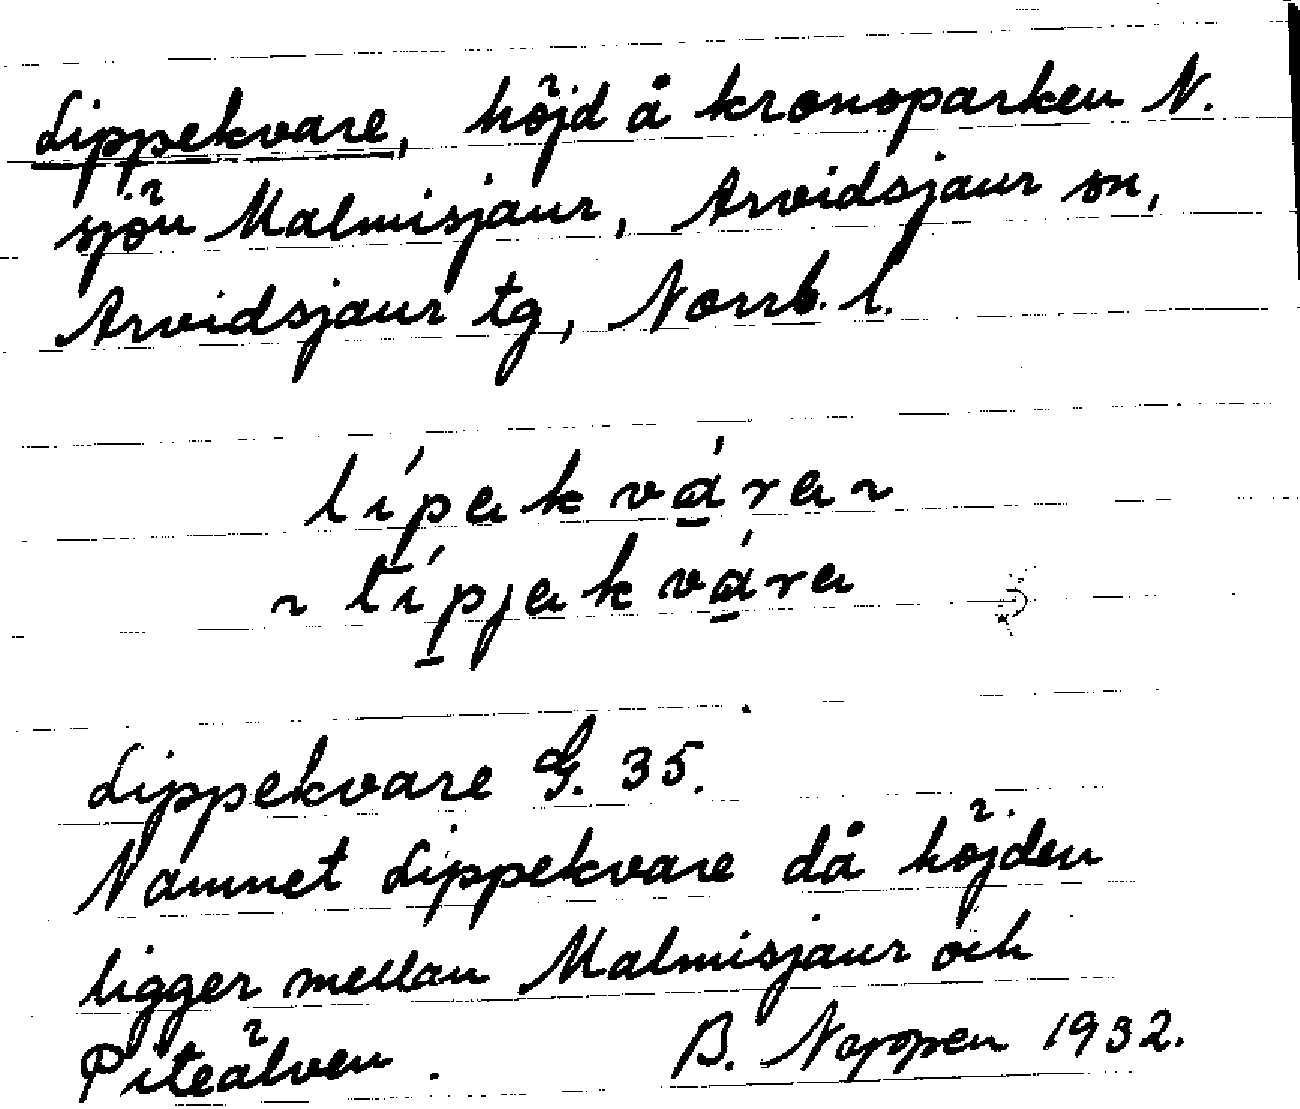 Lippekvare, höjd å kronoparken N.
sjön Malmisjaur, Arvidsjaur sn,
Arvidsjaur tg, Norrb. l.
lípekváre ~
~ lípjekváre
Lippekvare G. 35.
Namnet Lippekvare då höjden
ligger mellan Malmisjaur och
Piteälven.
B. Noppen 1932.